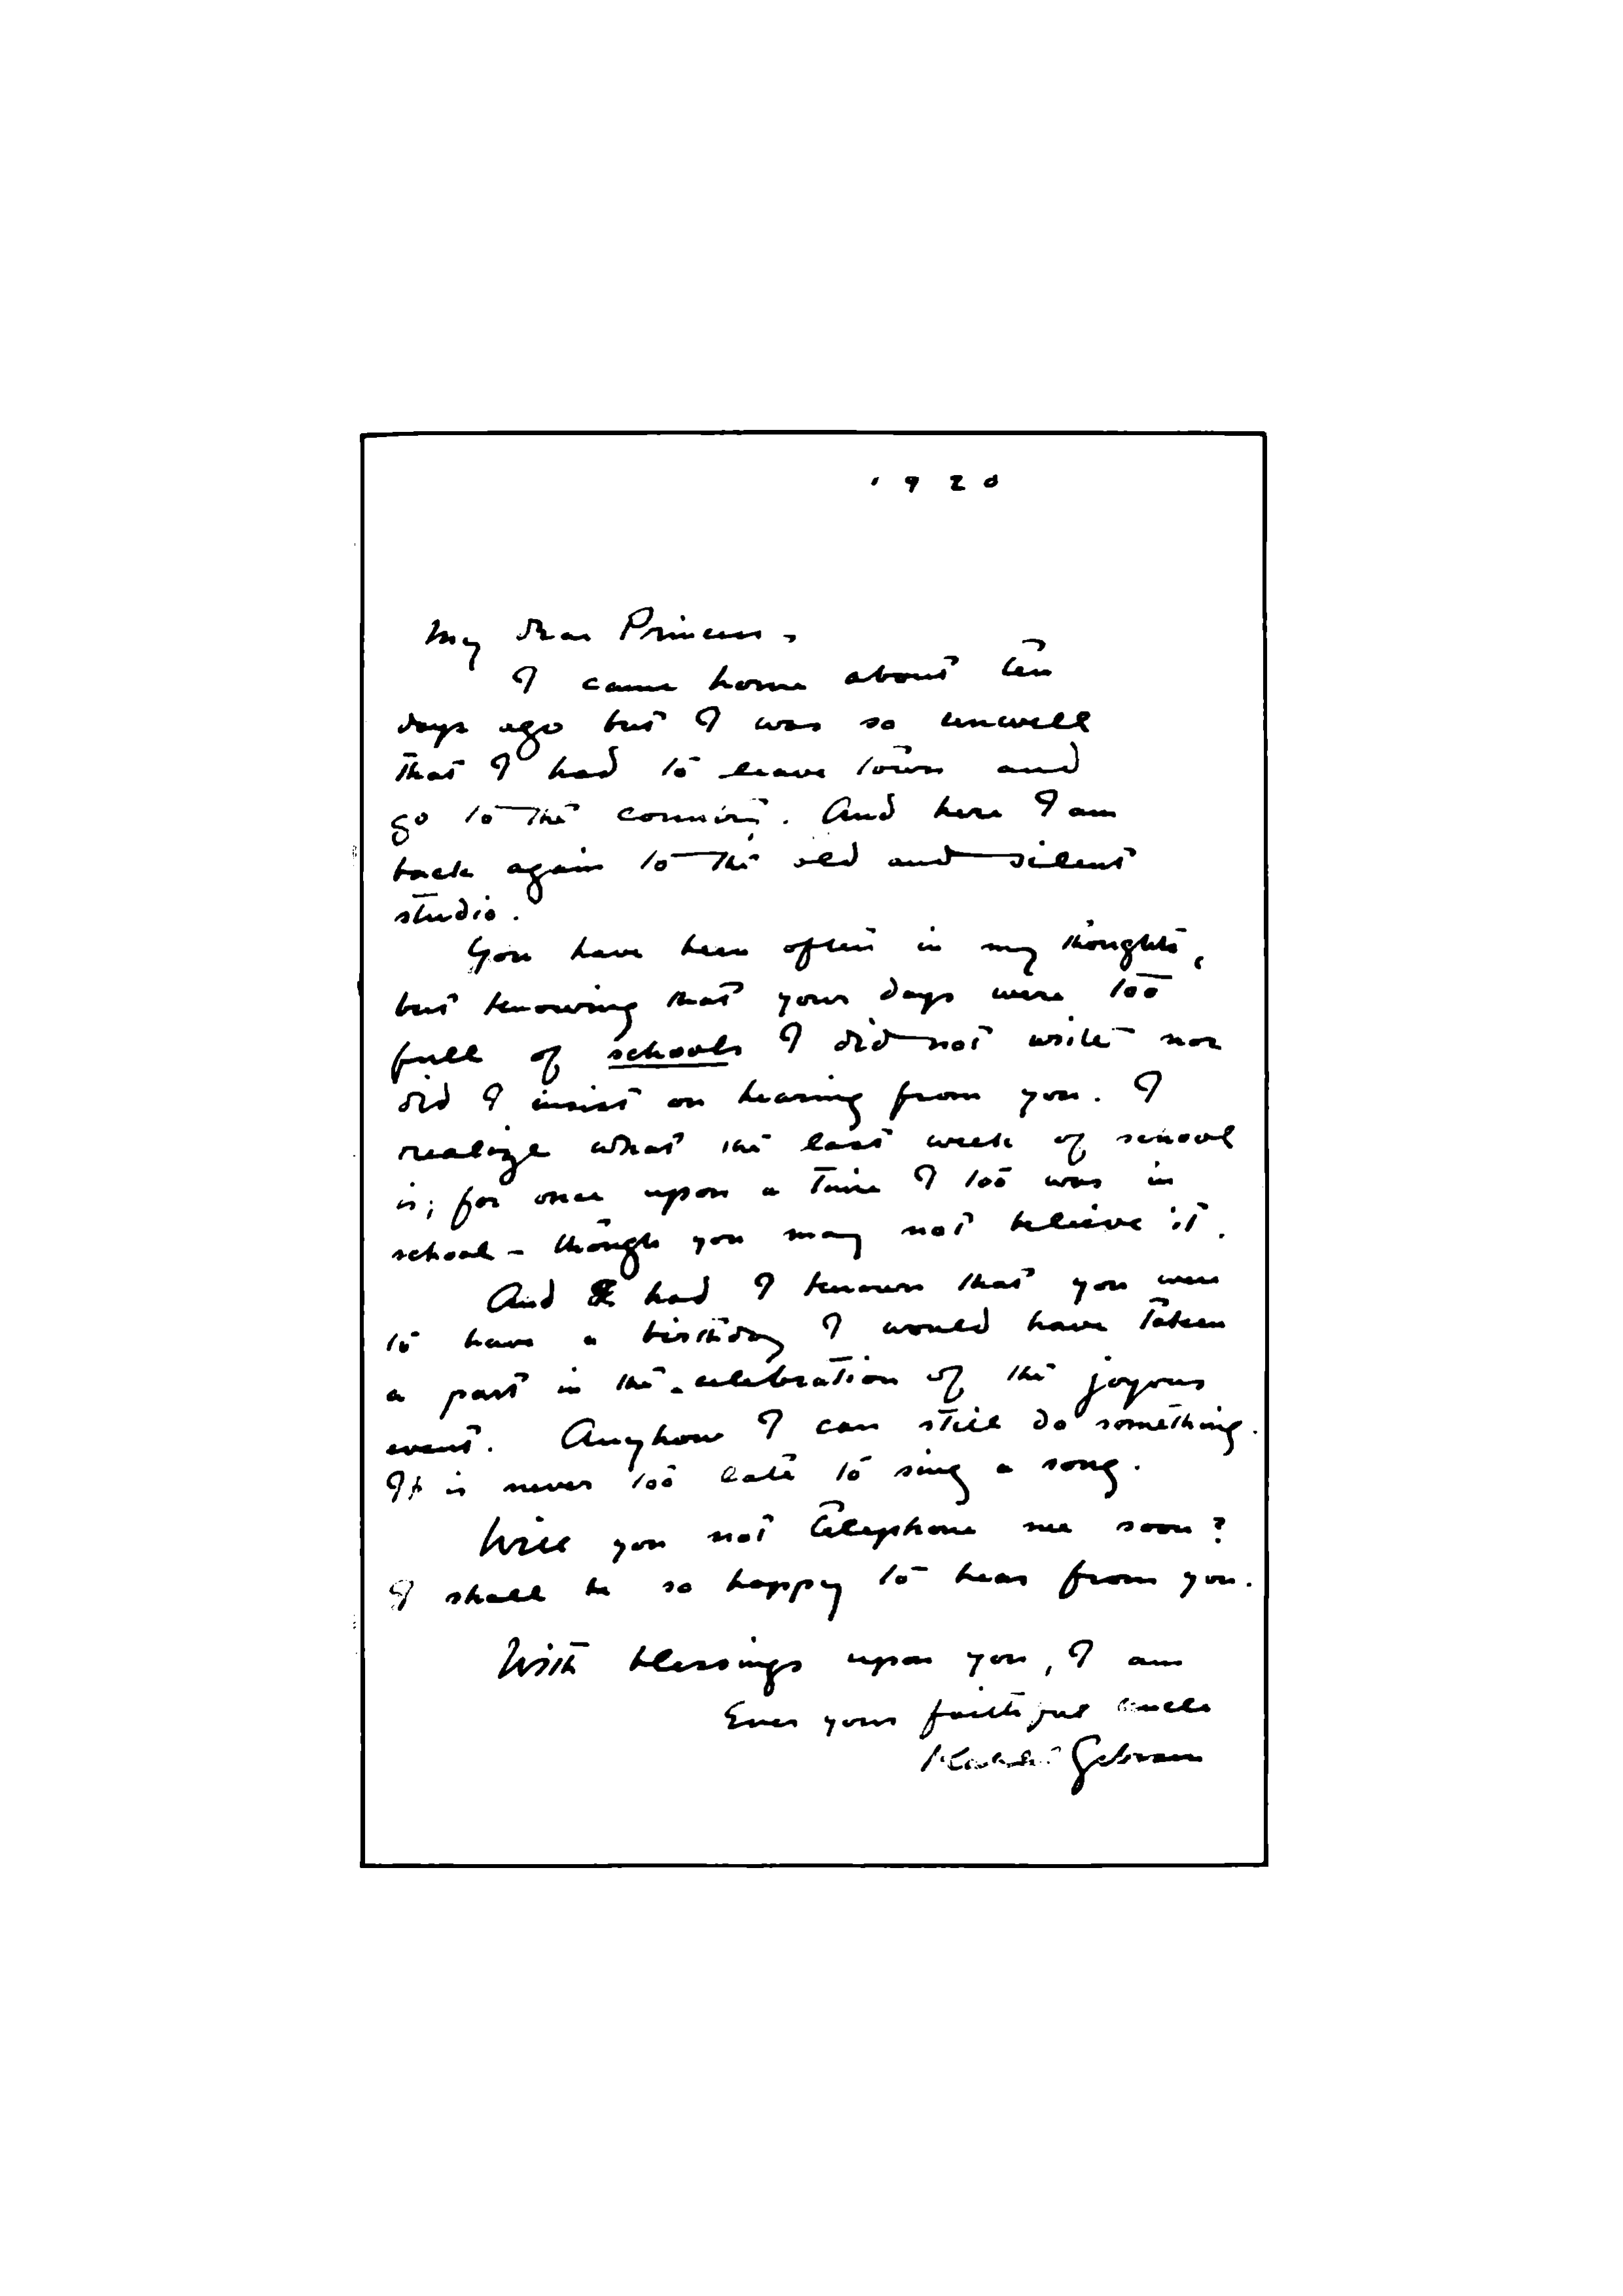 1920
My dear Princess,
I came home about ten
days ago but I was so unwell
that I had to leave town and
go to the country. And here I am
back again to the old and silent
studio.
You have been often in my thoughts,
but knowing that your days were too
full of schools I did not write nor
did I insist on hearing from you. I
realize what the last week of school
is; for once upon a time I too was in
school - though you may not believe it.
And had I known that you were
to have a birthday I would have taken
a part in the celebration of the joyous
event. Anyhow I can still do something.
It is never too late to sing a song.
Will you not telephone me soon?
I shall be so happy to hear from you.
With blessings upon you, I am
Ever your faithful uncle
Kahlil Gibran